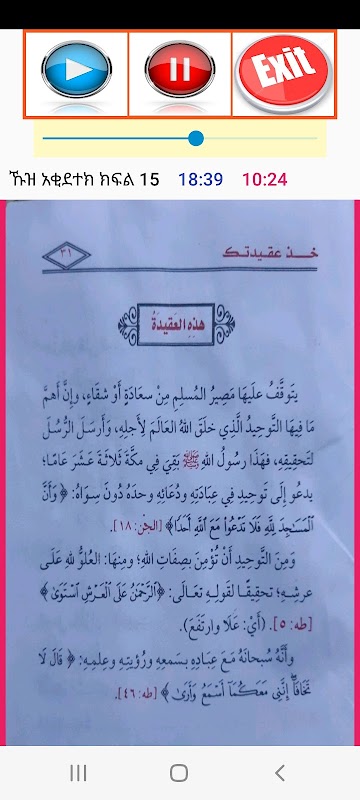 Exit
ኹዝ አቂደተክ ክፍል 15 18:39 10:24
خـــذ عقـيـدتـك
٣١
هذِهِ العَقِيدَةُ
يَتَوقَّفُ عَلَيهَا مَصِيرُ المُسلِمِ مِنْ سعَادَةٍ أَوْ شقَاءٍ، وإنَّ أَهمَّ
مَا فِيهَا التَّوحِيدُ الَّذِي خلَقَ اللهُ العَالَمَ لِأَجلِهِ، وَأَرسَلَ الرُّسُلَ
لتَحقِيقِهِ، فهَذَا رسُولُ اللهِ ﷺ بَقِيَ فِي مكَّةَ ثلَاثةَ عَشَرَ عَامًا؛
يدعُو إِلَى تَوحِيدِ فِي عِبَادَتِهِ ودُعَائِهِ وحدَهُ دُونَ سِوَاهُ: ﴿ وَأَنَّ
ٱلْمَسَٰجِدَ لِلَّهِ فَلَا تَدْعُوا۟ مَعَ ٱللَّهِ أَحَدًا﴾ [الجن: ١٨].
وَمِنَ التَّوحِيدِ أَنْ تُؤْمِنَ بِصِفَاتِ اللهِ؛ ومِنهَا: العُلُوُّ للهِ عَلَـى
عرشِهِ؛ تحقِيقًـا لقَولِـهِ تعَـالَى: ﴿ٱلرَّحْمَٰنُ عَلَى ٱلْعَرْشِ ٱسْتَوَىٰ﴾
[طه: ٥]. (أَيْ: عَلَا وارتَفَعَ).
وأَنَّهُ سُبحَانَهُ مَـعَ عِبَادِهِ بِسَمعِهِ ورُؤيتِهِ وعِلمِهِ: ﴿ قَالَ لَا
تَخَافَآ إِنَّنِى مَعَكُمَآ أَسْمَعُ وَأَرَىٰ ﴾ [طه: ٤٦].